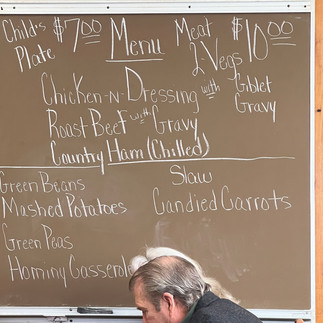 Child's Plate $7.00
Menu
Meat 2-Vegs $10.00
Chicken-n-Dressing with Giblet Gravy
Roast Beef with Gravy
Country Ham (Chilled)
Green Beans
Slaw
Mashed Potatoes
Candied Carrots
Green Peas
Hominy Casserole